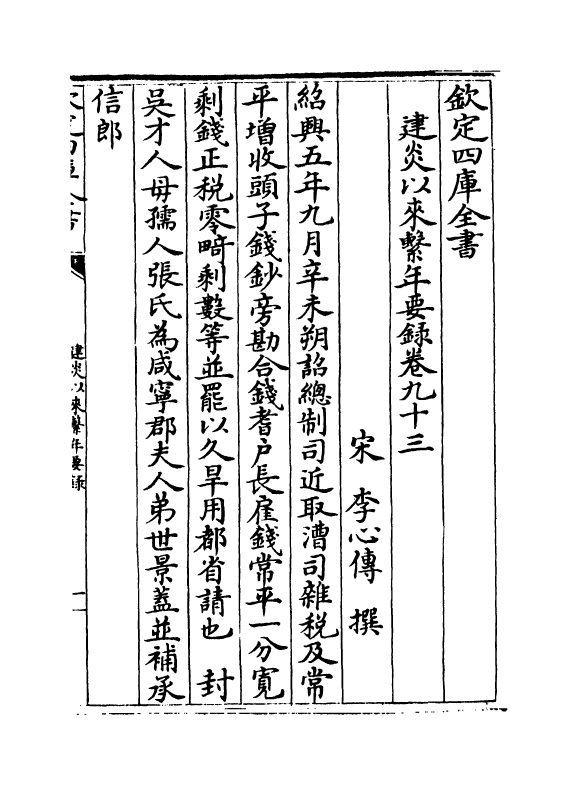 欽定四庫全書
建炎以來繫年要錄卷九十三
宋 李心傳 撰
紹興五年九月辛未朔詔總制司近取漕司雜税及常
平增收頭子錢鈔旁勘合錢耆户長雇錢常平一分寛
剩錢正税零畸剩數等並罷以久旱用都省請也 封
吳才人母孺人張氏為咸寧郡夫人弟世景蓋並補承
信郎
欽定四庫全書
建炎以來繫年要録